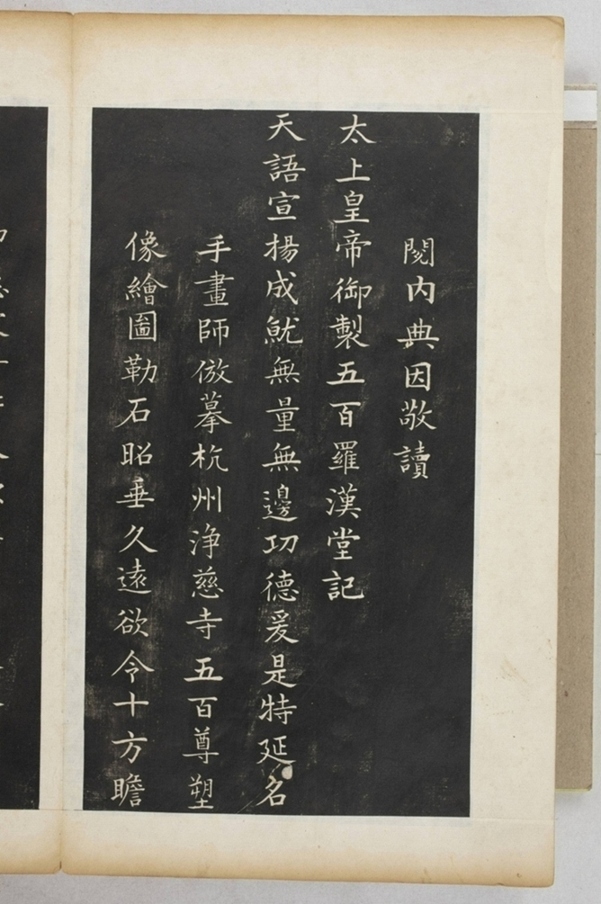 閱内典因敬讀
太上皇帝御製五百羅漢堂記
天語宣揚成就無量無邊功德爰是特延名
手畫師倣摹杭州淨慈寺五百尊塑
像繪圖勒石昭垂久遠欲令十方瞻